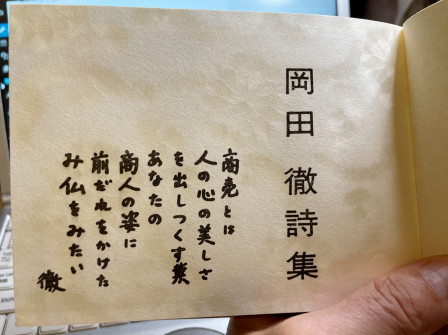 岡田 徹詩集
商売とは
人の心の美しさ
を出しつくす業
あなたの
商人の姿に
前だれをかけた
み仏をみたい
徹